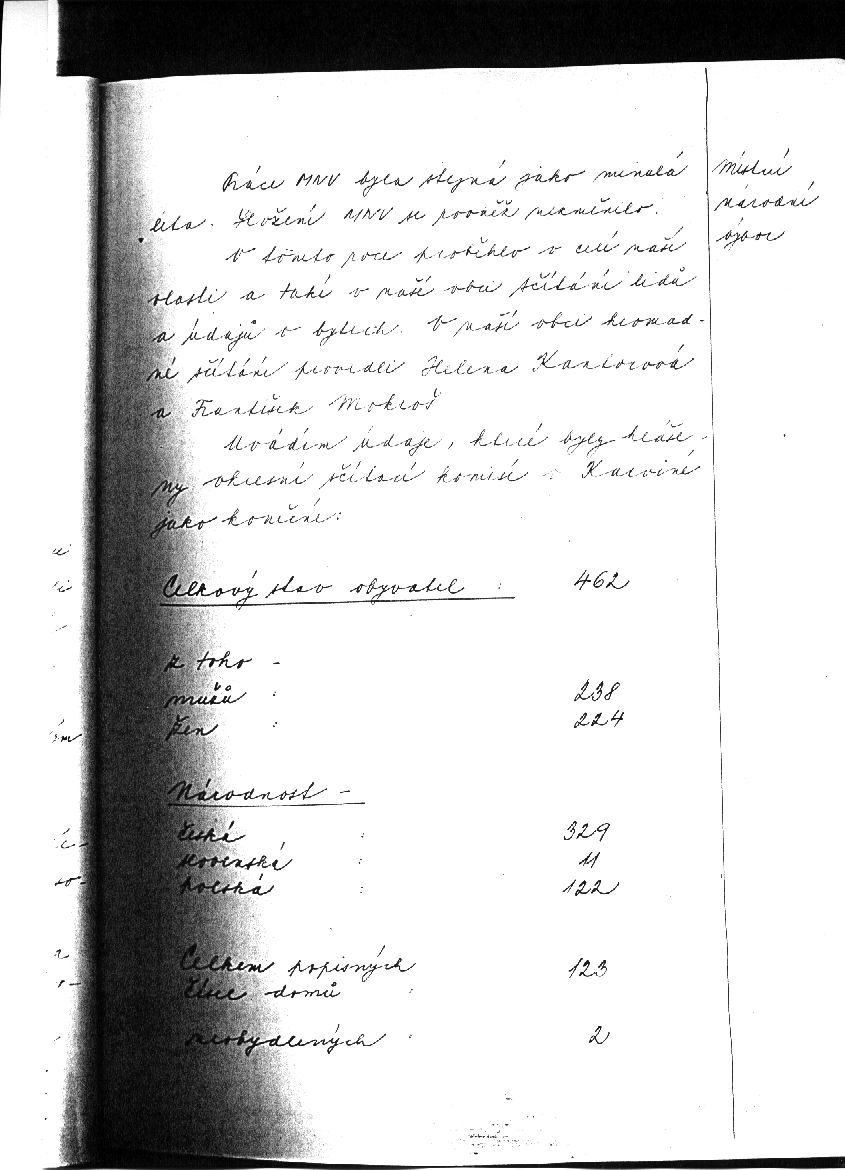 Práce MNV byla stejná jako minulá
léta. Složení MNV se rovněž nezměnilo.
V tomto roce proběhlo v celé naší
vlasti a také v naší obci sčítání lidů
a údajů o bytech. V naší obci hromad-
né sčítání provedli Helena Kantorová
a František Mokroš
Uvádím údaje, které byly hláše-
ny okresní sčítací komisí v Karviné
jako konečné:
Místní
národní
výbor
Celkový stav obyvatel : 462
z toho -
mužů : 238
žen : 224
Národnost -
česká : 329
slovenská : 11
polská : 122
Celkem popisných 123
čísel domů :
neobydlených : 2